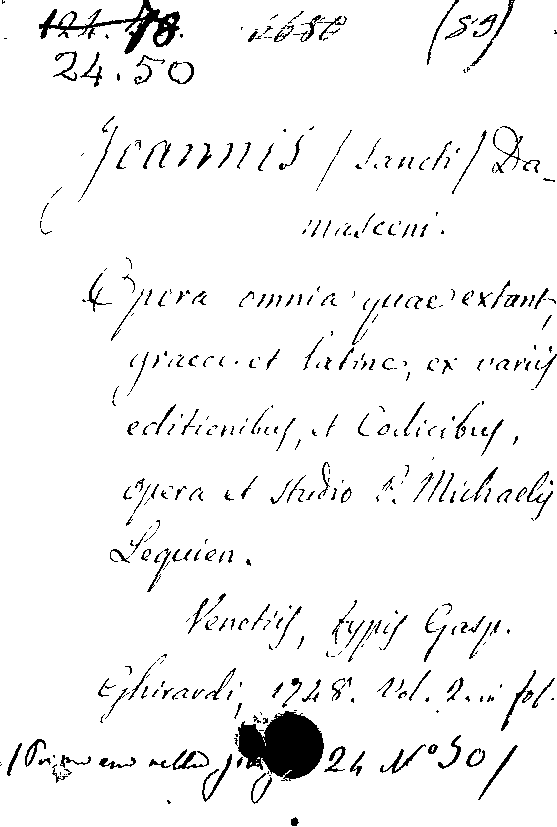 124. 78. 2680 (59)
24.50
Joannis /Sancti/ Da-
masceni.
Opera omnia quae extant,
graece et latine, ex variis
editionibus, et Codicibus,
opera et studio P. Michaelis
Lequien.
Venetiis, typis Gasp.
Ghirardi, 1748. Vol. 2. in fol.
/Prima era nella 24 Nº 50/